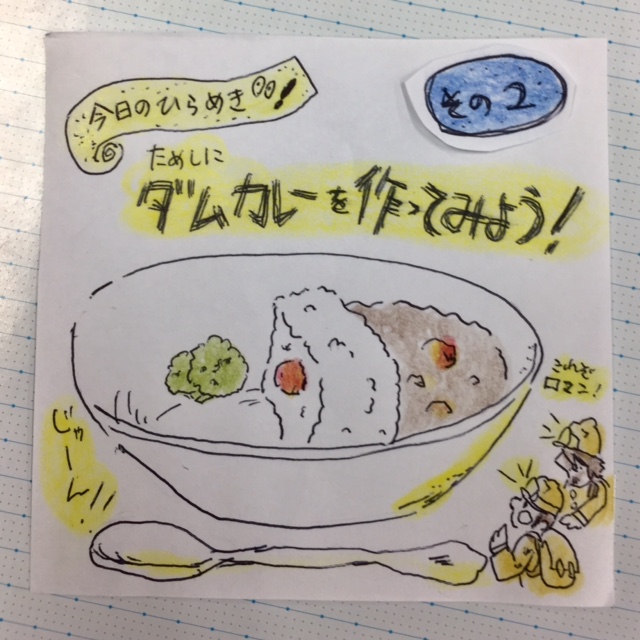 今日のひらめき!
その2
ためしに
ダムカレーを作ってみよう!
これぞ
ロマン!
じゃーん!!